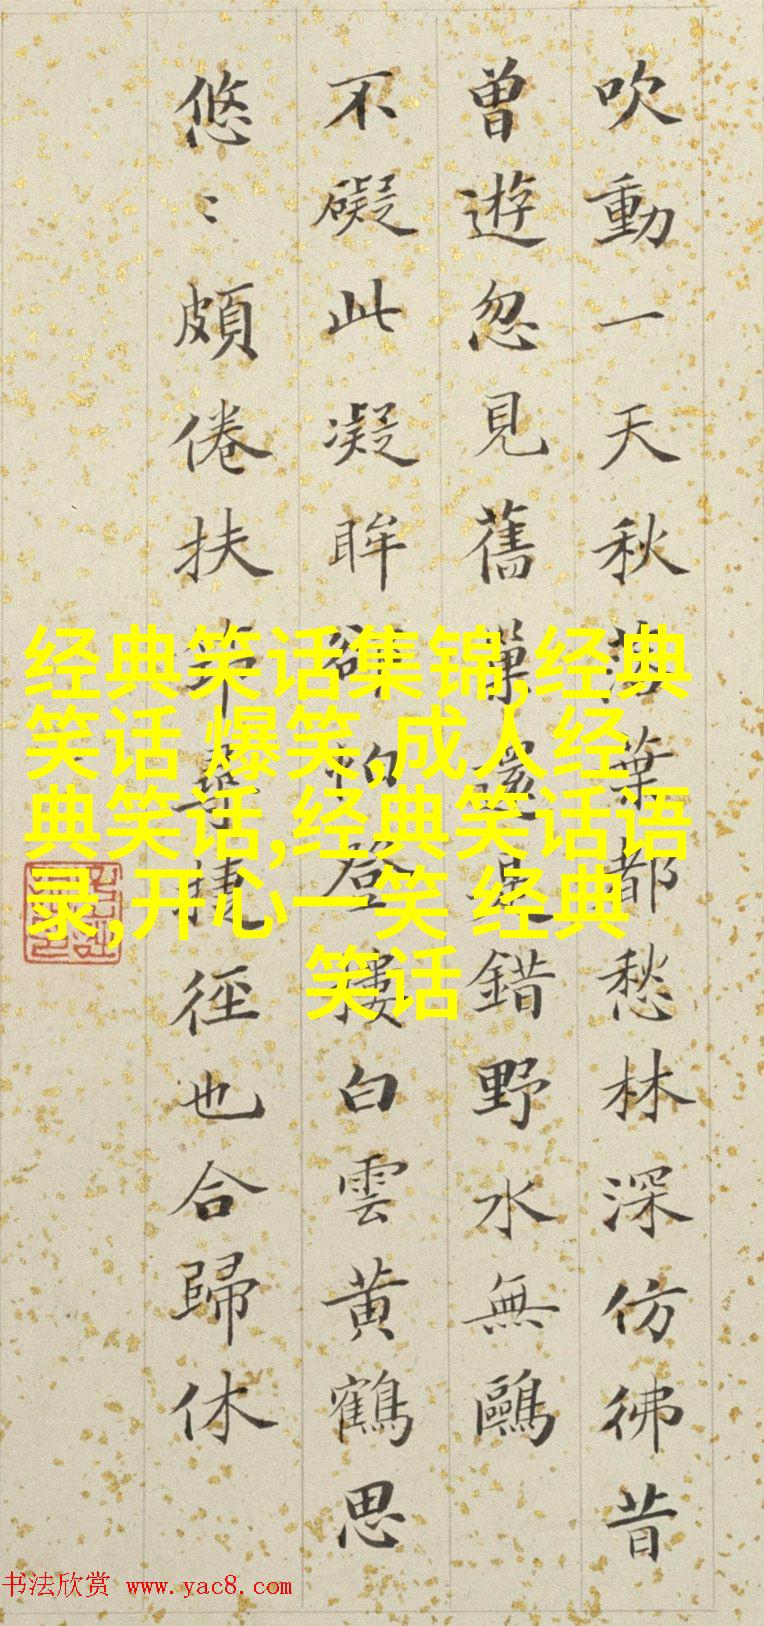 吹動一天秋落葉都愁林深仿彿昔
曾遊忽見舊還是錯野水無鷗
不礙此凝眸卻怕登樓白雲黃鶴思
悠〻頗倦扶筇尋捷徑也合歸休
经典笑话集锦,经典
笑话 爆笑,成人经
典笑话,经典笑话语
录,开心一笑 经典
笑话
书法欣赏 www.yac8.com